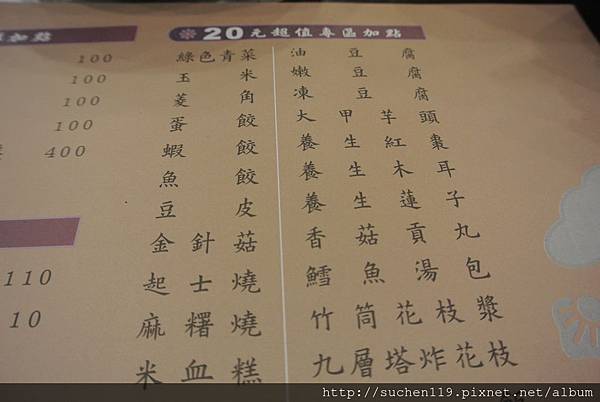 加點
100
100
100
100
400
110
10
20元超值專區加點
綠色青菜
玉米
菱角
蛋餃
蝦餃
魚餃
豆皮
金針菇
起士燒
麻糬燒
米血糕
油豆腐
嫩豆腐
凍豆腐
大甲芋頭
養生紅棗
養生木耳
養生蓮子
香菇貢丸
鱈魚湯包
竹筒花枝漿
九層塔炸花枝
http://suchen119.pixnet.net/album